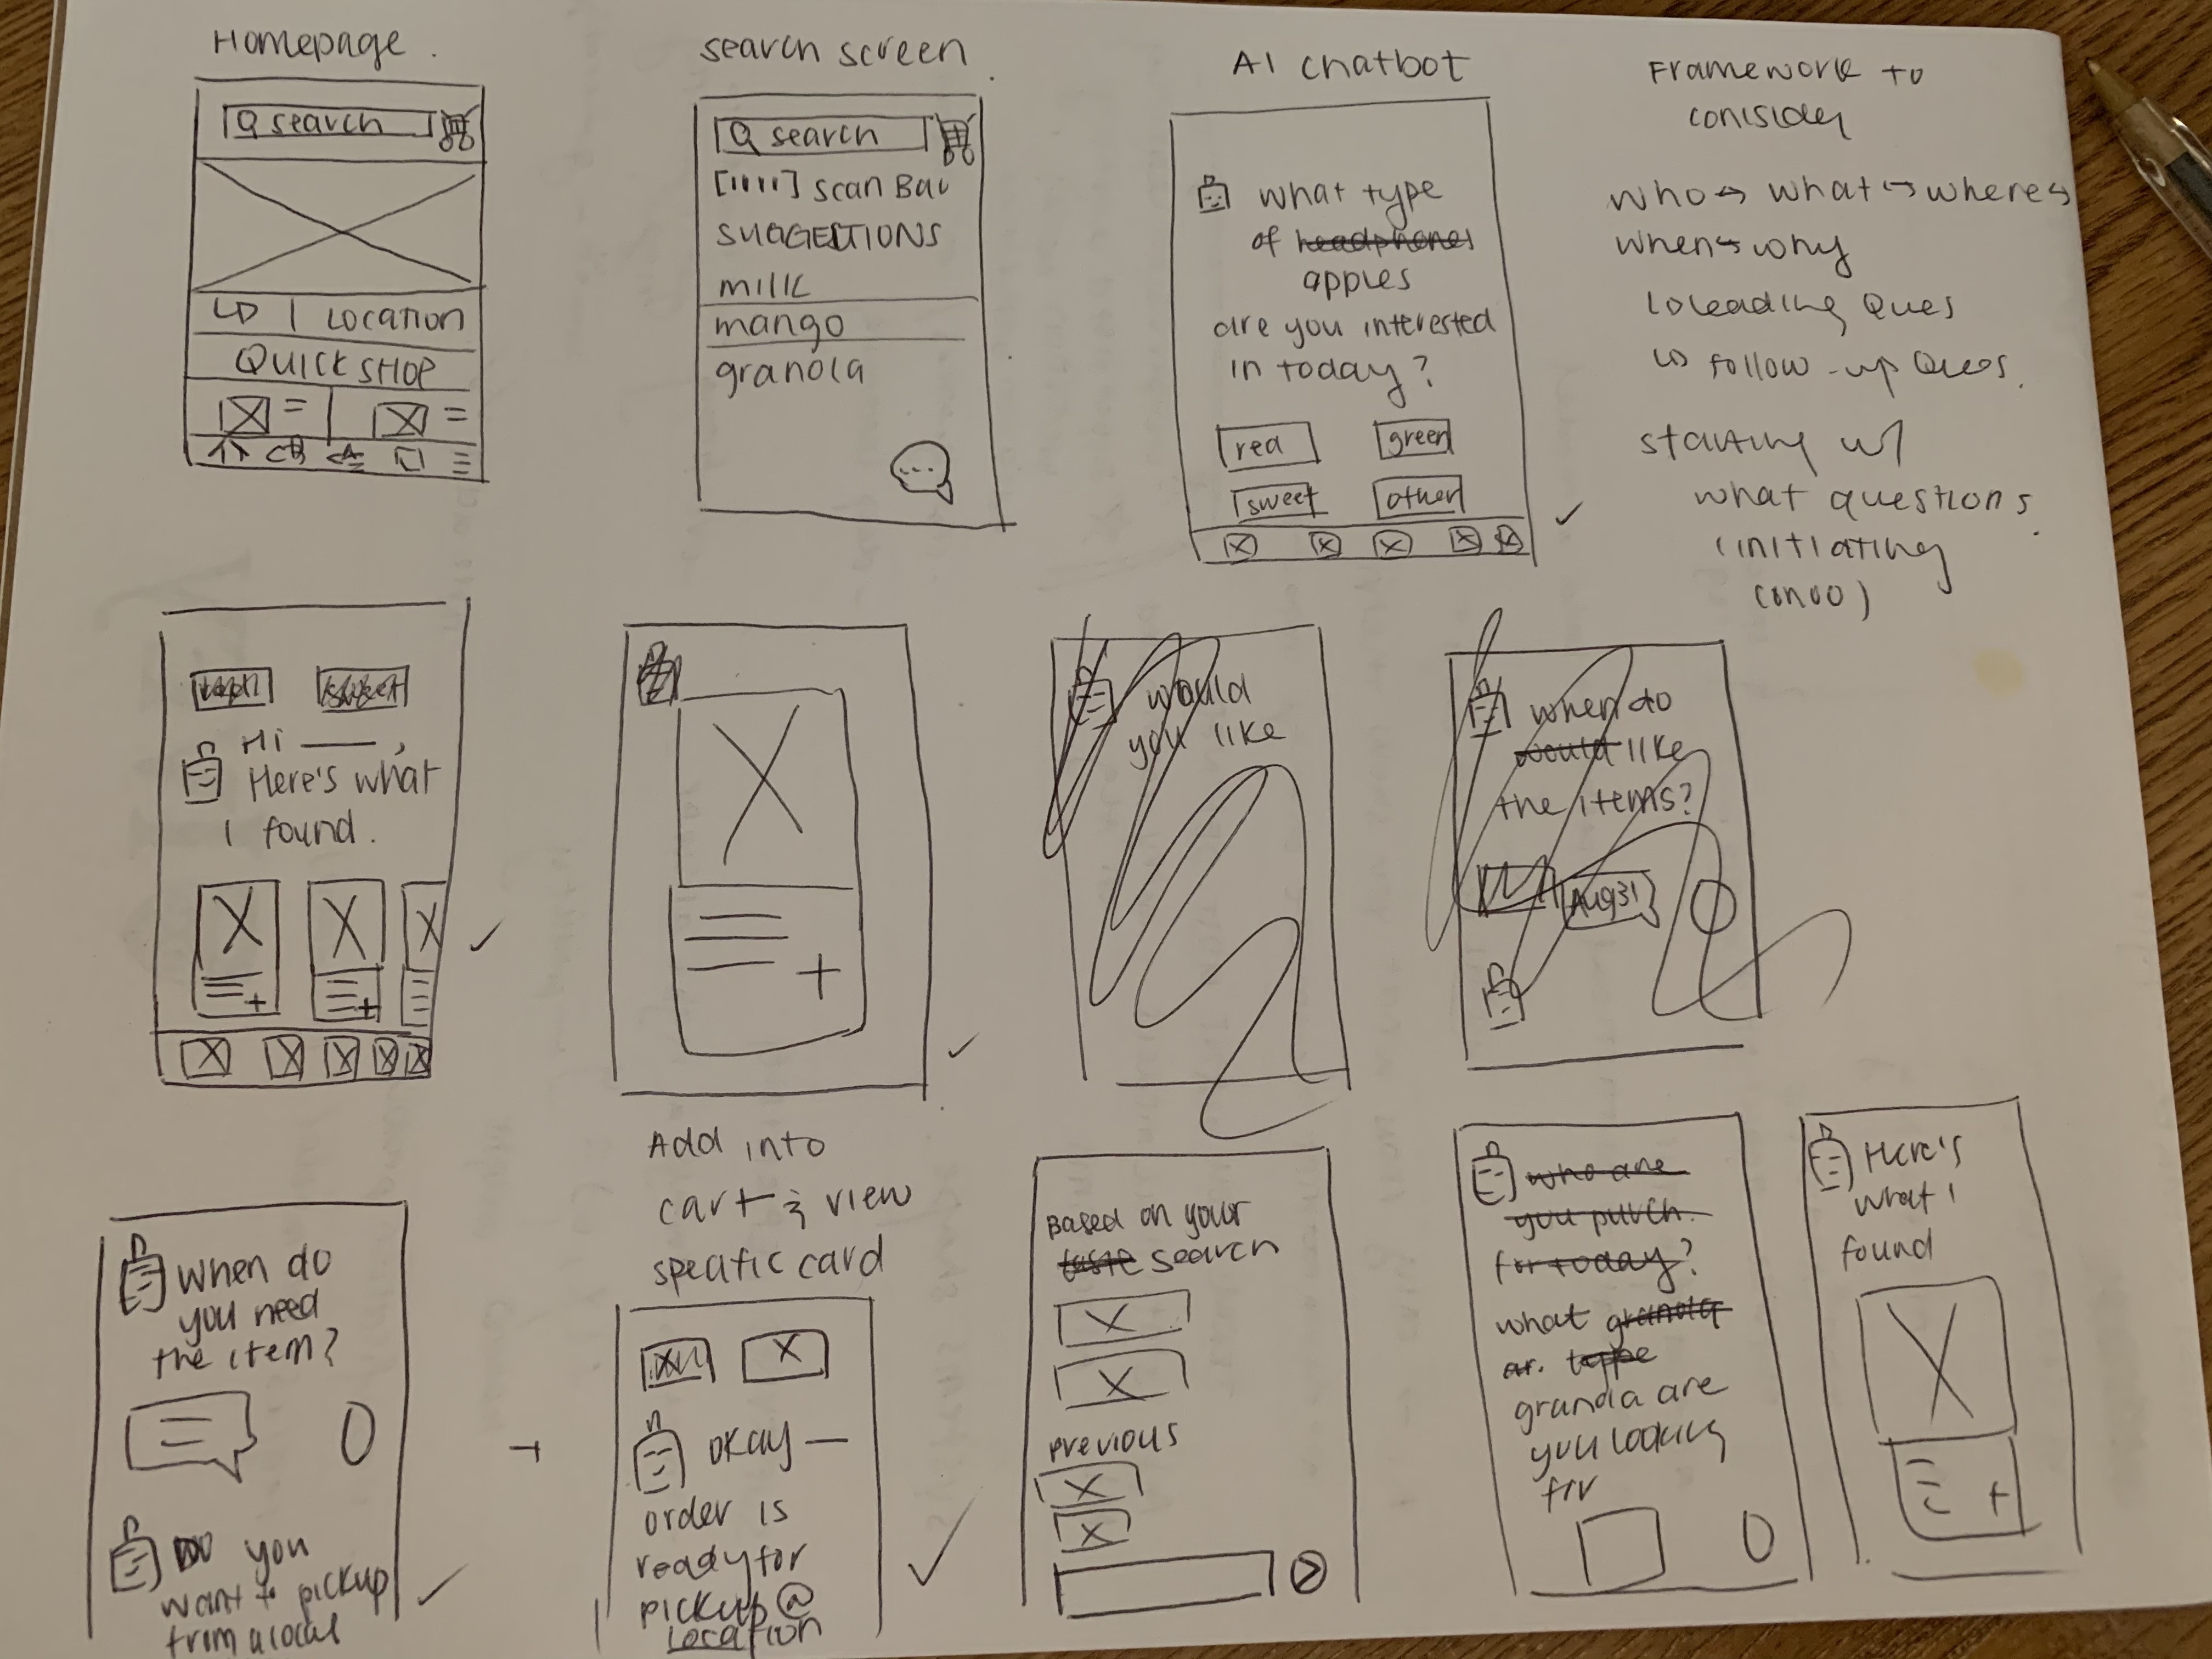 Homepage.
search
Location
QUICK SHOP
search screen.
search
scan Bar
SUGGESTIONS
milk
mango
granola
AI chatbot
what type
of headphones
apples
are you interested
in today?
red
green
sweet
other
Framework to
consider
who → what → where →
when → why
↳ leading Ques
↳ follow-up Ques.
starting w/
what questions.
(initiating
convo)
Hi ___,
Here's what
I found.
Add into
cart & view
specific card
would
you like
when do
would like
the items?
Aug 31
When do
you need
the item?
Do you
want to pickup
from a local
okay —
order is
ready for
pickup @
Location
Based on your
taste search
previous
who are
you purch.
for today?
what granola
ar. type
granola are
you looking
for
Here's
what I
found